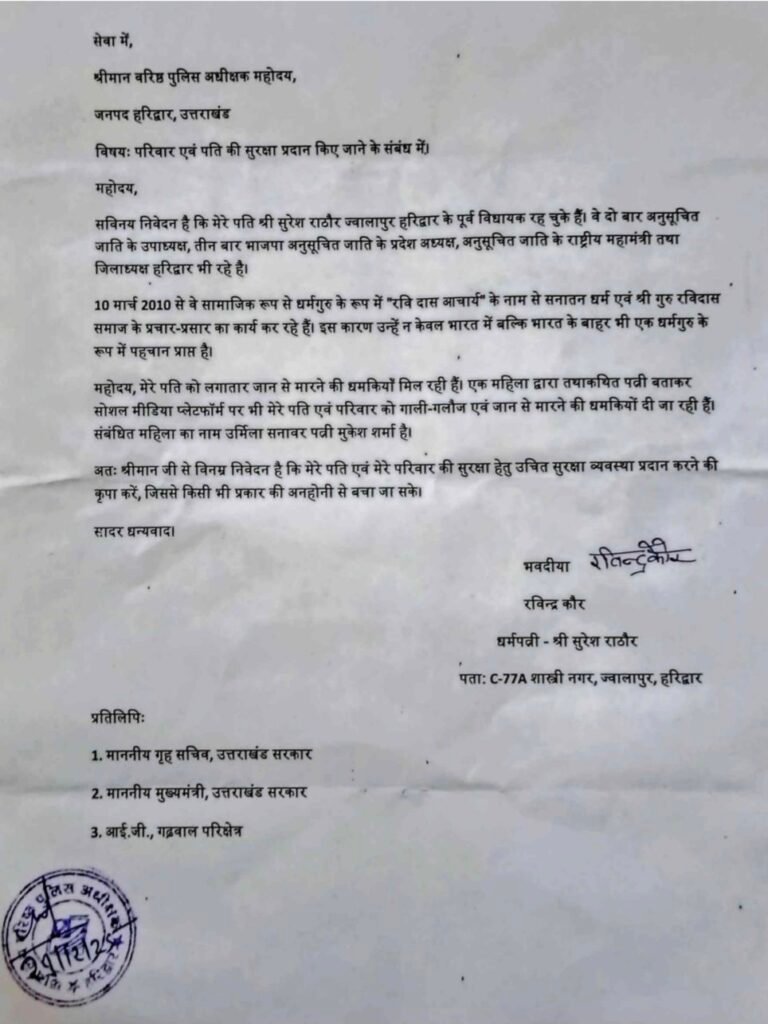 सेवा में,
श्रीमान वरिष्ठ पुलिस अधीक्षक महोदय,
जनपद हरिद्वार, उत्तराखंड
विषयः परिवार एवं पति की सुरक्षा प्रदान किए जाने के संबंध में।
महोदय,
सविनय निवेदन है कि मेरे पति श्री सुरेश राठौर ज्वालापुर हरिद्वार के पूर्व विधायक रह चुके हैं। वे दो बार अनुसूचित
जाति के उपाध्यक्ष, तीन बार भाजपा अनुसूचित जाति के प्रदेश अध्यक्ष, अनुसूचित जाति के राष्ट्रीय महामंत्री तथा
जिलाध्यक्ष हरिद्वार भी रहे है।
10 मार्च 2010 से वे सामाजिक रूप से धर्मगुरु के रूप में "रवि दास आचार्य" के नाम से सनातन धर्म एवं श्री गुरु रविदास
समाज के प्रचार-प्रसार का कार्य कर रहे हैं। इस कारण उन्हें न केवल भारत में बल्कि भारत के बाहर भी एक धर्मगुरु के
रूप में पहचान प्राप्त है।
महोदय, मेरे पति को लगातार जान से मारने की धमकियाँ मिल रही हैं। एक महिला द्वारा तथाकथित पत्नी बताकर
सोशल मीडिया प्लेटफॉर्म पर भी मेरे पति एवं परिवार को गाली-गलौज एवं जान से मारने की धमकियों दी जा रही हैं।
संबंधित महिला का नाम उर्मिला सनावर पत्नी मुकेश शर्मा है।
अतः श्रीमान जी से विनम्र निवेदन है कि मेरे पति एवं मेरे परिवार की सुरक्षा हेतु उचित सुरक्षा व्यवस्था प्रदान करने की
कृपा करें, जिससे किसी भी प्रकार की अनहोनी से बचा जा सके।
सादर धन्यवाद।
भवदीया
रविन्द्र कौर
धर्मपत्नी - श्री सुरेश राठौर
पता: C-77A शास्त्री नगर, ज्वालापुर, हरिद्वार
प्रतिलिपिः
1. माननीय गृह सचिव, उत्तराखंड सरकार
2. माननीय मुख्यमंत्री, उत्तराखंड सरकार
3. आई.जी., गढ़वाल परिक्षेत्र
वरिष्ठ पुलिस अधीक्षक
हरिद्वार